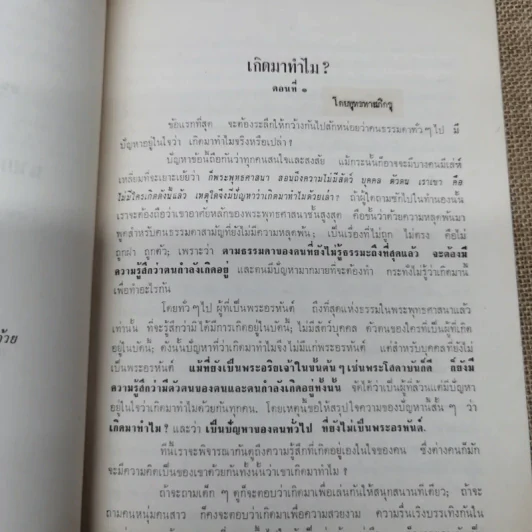 เกิดมาทำไม?
ตอนที่ ๑
โดยพุทธทาสภิกขุ
ข้อแรกที่สุด จะต้องระลึกให้กว้างกันไปสักหน่อยว่าคนธรรมดาทั่วๆ ไป มี
ปัญหาอยู่ในใจว่า เกิดมาทำไมจริงหรือเปล่า?
ปัญหาข้อนี้ถือกันว่าทุกคนสนใจและสงสัย แม้กระนั้นก็อาจจะมีบางคนมีเล่ห์
เหลี่ยมที่จะเยาะเย้ยว่า ก็พระพุทธศาสนา สอนถึงความไม่มีสัตว์ บุคคล ตัวตน เราเขา คือ
ไม่มีใครเกิดดังนี้แล้ว เหตุใดจึงมีปัญหาว่าเกิดมาทำไมด้วยเล่า? ถ้าผู้ใดถามซักไปในทำนองนั้น
เราจะต้องถือว่าเขาอาศัยหลักของพระพุทธศาสนาชั้นสูงสุด คือชั้นว่าด้วยความหลุดพ้นมา
พูดสำหรับคนธรรมดาสามัญที่ยังไม่มีความหลุดพ้น; เป็นเรื่องที่ไม่ถูก ไม่ตรง คือไม่
ถูกฝา ถูกตัว; เพราะว่า ตามธรรมดาของคนที่ยังไม่รู้ธรรมะถึงที่สุดแล้ว จะต้องมี
ความรู้สึกว่าตนกำลังเกิดอยู่ และตนมีปัญหามากมายที่จะต้องทำ กระทั่งไม่รู้ว่าเกิดมานี้
เพื่อทำอะไรกัน
โดยทั่วๆ ไป ผู้ที่เป็นพระอรหันต์ ถึงที่สุดแห่งธรรมในพระพุทธศาสนาแล้ว
เท่านั้น ที่จะรู้สึกว่ามิได้มีการเกิดอยู่ในบัดนี้; ไม่มีสัตว์บุคคล ตัวตนของใครที่เป็นผู้ที่เกิด
อยู่ในบัดนี้; ดังนั้นปัญหาที่ว่าเกิดมาทำไมจึงไม่มีแก่พระอรหันต์ แต่สำหรับบุคคลที่ยังไม่
เป็นพระอรหันต์ แม้ที่ยังเป็นพระอริยเจ้าในขั้นต้นๆ เช่นพระโสดาบันก็ดี ก็ยังมี
ความรู้สึกว่ามีตัวตนของตนและตนกำลังเกิดอยู่ทั้งนั้น จัดได้ว่าเป็นผู้ที่ล้วนแต่มีปัญหา
อยู่ในใจว่าเกิดมาทำไมด้วยกันทุกคน. โดยเหตุนี้ขอให้สรุปใจความของปัญหานี้สั้น ๆ ว่า
เกิดมาทำไม? และว่า เป็นปัญหาของคนทั่วไป ที่ยังไม่เป็นพระอรหันต์.
ทีนี้เราจะพิจารณากันดูถึงความรู้สึกที่เกิดอยู่เองในใจของคน ซึ่งต่างคนก็มัก
จะมีความคิดเป็นของเขาด้วยกันทั้งนั้นว่าเขาเกิดมาทำไม?
ถ้าจะถามเด็ก ๆ ดูก็จะตอบว่าเกิดมาเพื่อเล่นกันให้สนุกสนานทีเดียว; ถ้าจะ
ถามคนหนุ่มคนสาว ก็คงจะตอบว่าเกิดมาเพื่อความสวยงาม ความรื่นเริงบรรเทิงกันใน